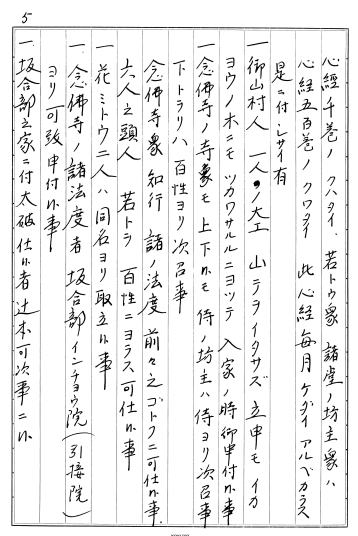 5
心経千巻ノクハタイ、若トウ衆諸堂ノ坊主衆ハ
心経五百巻ノクワタイ 此心経毎月ケダイアルベカラス
是ニ付シサイ有
一御山村人一人ノ大工 山テライタサズ立申モイカ
ヨウノ木ニモツカワサルルニヨツテ入家ノ時御申付ル事
一念佛寺ノ寺衆モ上下ルモ侍ノ坊主ハ侍ヨリ次召事
下トラリハ百性ヨリ次召事
念佛寺衆知行諸ノ法度前々之ゴトクニ可仕ル事.
六人之頭人 若トラ百性ニヨラス可仕ル事
一花ミトウ二人ハ同名ヨリ取立ル事
一、念佛寺ノ諸法度者坂合部インチヨウ院(引接院)
ヨリ可致申付ル事
一坂合部立家ニ付大破仕ル者辻本可次事ニル